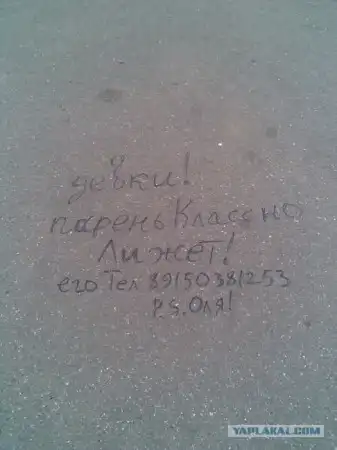 девки!
парень Классно
Лижет!
его Тел 89150381253
P.S. Оля!
YAPLAKAL.COM